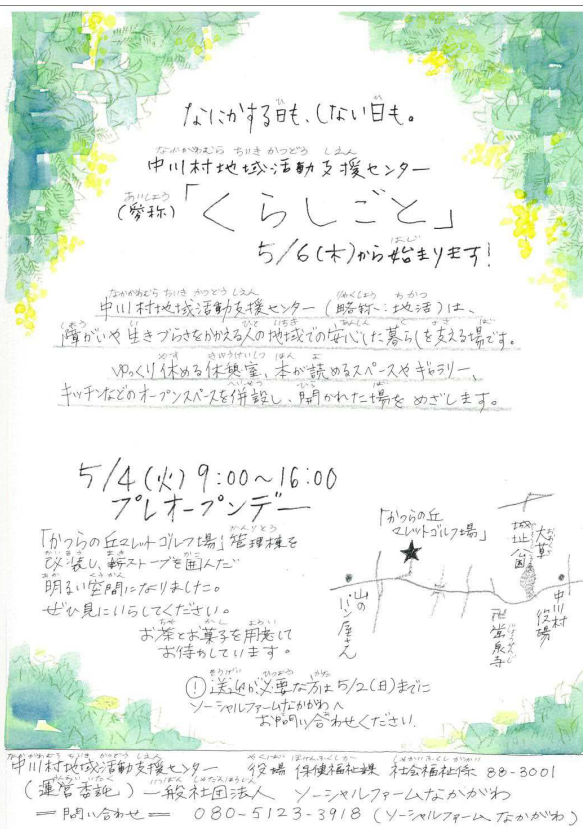 なにかする日も、しない日も。
中川村地域活動支援センター
(愛称)「くらしごと」
5/6(木)から始まります!
中川村地域活動支援センター(略称:地活)は、
障がいや生きづらさをかかえる人の地域での安心した暮らしを支える場です。
ゆっくり休める休憩室、本が読めるスペースやギャラリー、
キッチンなどのオープンスペースを併設し、開かれた場をめざします。
5/4(火)9:00~16:00
プレオープンデー
「かつらの丘マレットゴルフ場」管理棟を
改装し、薪ストーブを囲んだ
明るい空間になりました。
ぜひ見にいらしてください。
お茶とお菓子を用意して
お待ちしています。
「かつらの丘
マレットゴルフ場」
大草
城址公園
中川村
役場
山の
パン屋さん
①送迎が必要な方は5/2(日)までに
ソーシャルファームなかがわへ
お問い合わせください。
中川村地域活動支援センター 役場 保健福祉課 社会福祉係 88-3001
(運営委託)一般社団法人 ソーシャルファームなかがわ
=問い合わせ= 080-5123-3918(ソーシャルファームなかがわ)